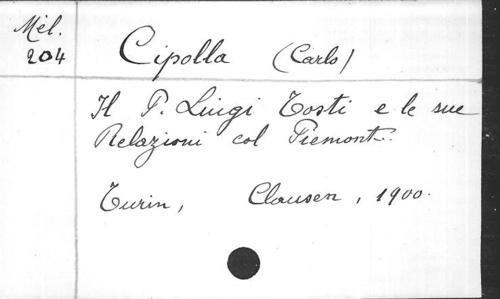 Mél.
204
Cipolla (Carlo)
Il P. Luigi Tosti e le sue
Relazioni col Piemont.
Turin, Clausen, 1900.